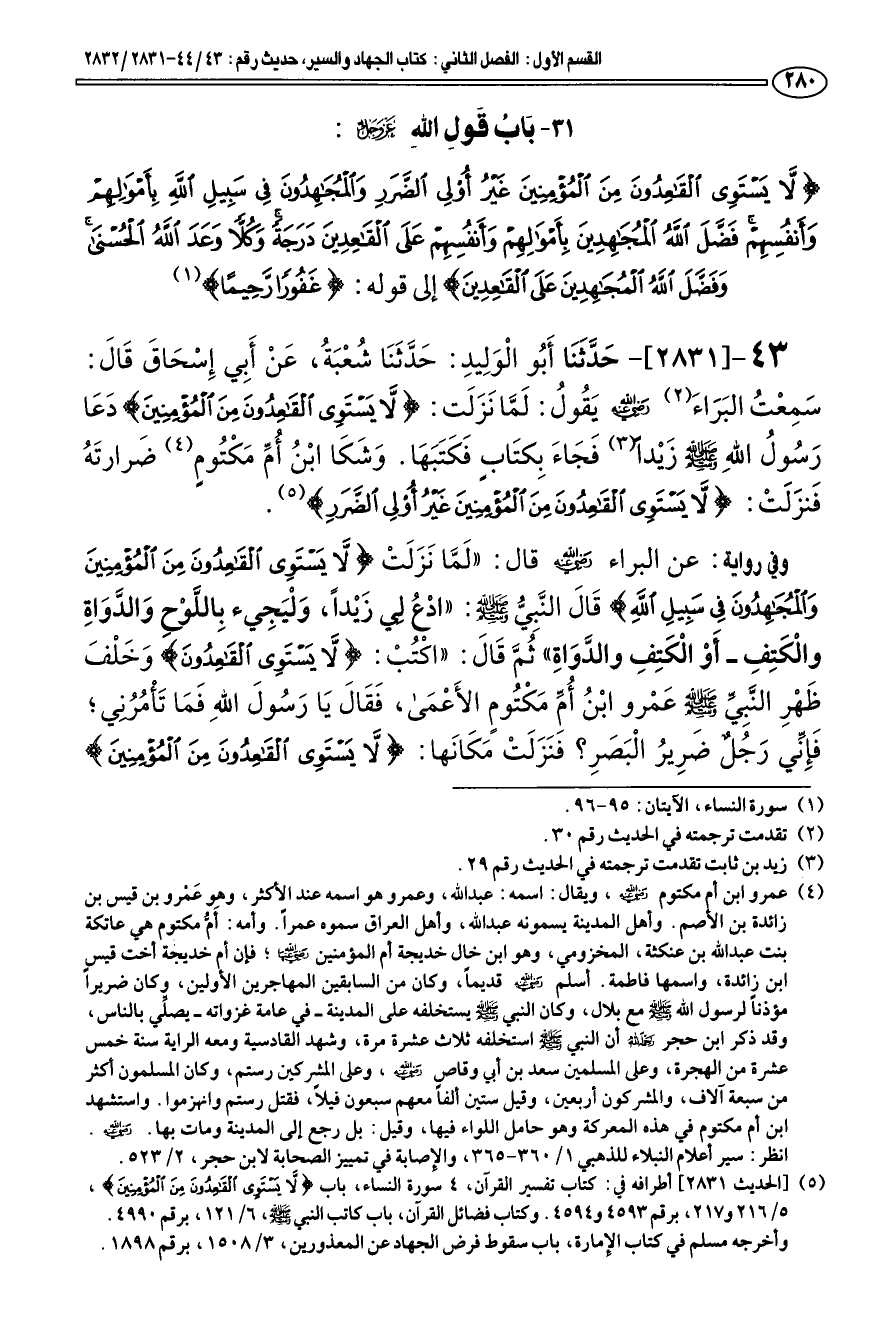 القسم الأول : الفصل الثاني : كتاب الجهاد والسير، حديث رقم : ٤٣ /٤٤-٢٨٣١ /٢٨٣٢
٢٨٠
٣١- بَابُ قَولِ اللهِ عَزَّوَجَلَّ :
﴿ لَّا يَسْتَوِى الْقَاعِدُونَ مِنَ الْمُؤْمِنِينَ غَيْرُ أُوْلِى الضَّرَرِ وَالْمُجَاهِدُونَ فِى سَبِيلِ اللَّهِ بِأَمْوَالِهِمْ
وَأَنفُسِهِمْ ۚ فَضَّلَ اللَّهُ الْمُجَاهِدِينَ بِأَمْوَالِهِمْ وَأَنفُسِهِمْ عَلَى الْقَاعِدِينَ دَرَجَةً ۚ وَكُلًّا وَعَدَ اللَّهُ الْحُسْنَىٰ ۚ
وَفَضَّلَ اللَّهُ الْمُجَاهِدِينَ عَلَى الْقَاعِدِينَ﴾ إلى قوله : ﴿ غَفُورًا رَّحِيمًا﴾(١)
٤٣-[٢٨٣١]- حَدَّثَنَا أَبُو الْوَلِيدِ: حَدَّثَنَا شُعْبَةُ، عَنْ أَبِي إِسْحَاقَ قَالَ:
سَمِعْتُ البَرَاءَ(٢) رَضِيَ اللَّهُ عَنْهُ يَقُولُ: لَمَّا نَزَلَت: ﴿ لَّا يَسْتَوِى الْقَاعِدُونَ مِنَ الْمُؤْمِنِينَ﴾ دَعَا
رَسُولُ اللهِ ﷺ زَيْداً(٣) فَجَاءَ بِكتابٍ فَكَتَبَهَا. وَشَكَا ابْنُ أُمِّ مَكْتُومٍ(٤) ضَرارتَهُ
فَنزَلَتْ: ﴿ لَّا يَسْتَوِى الْقَاعِدُونَ مِنَ الْمُؤْمِنِينَ غَيْرُ أُوْلِى الضَّرَرِ﴾(٥).
وفي رواية: عن البراء رَضِيَ اللَّهُ عَنْهُ قال: «لَمَّا نَزَلَتْ ﴿ لَّا يَسْتَوِى الْقَاعِدُونَ مِنَ الْمُؤْمِنِينَ
وَالْمُجَاهِدُونَ فِى سَبِيلِ اللَّهِ﴾ قَالَ النَّبِيُّ ﷺ: «ادْعُ لِي زَيْداً، وَلْيَجِيء بِاللَّوْحِ وَالدَّوَاةِ
والْكَتِفِ ـ أَوْ الْكَتِفِ والدَّوَاةِ» ثُمَّ قَالَ: «اكْتُبْ: ﴿ لَّا يَسْتَوِى الْقَاعِدُونَ﴾ وَخَلْفَ
ظَهْرِ النَّبِيِّ ﷺ عَمْرو ابْنُ أُمِّ مَكْتُومٍ الأَعْمَىٰ، فَقَالَ يَا رَسُولَ اللهِ فَمَا تَأْمُرُنِي؛
فَإِنِّي رَجُلٌ ضَرِيرُ الْبَصَرِ؟ فَنَزَلَتْ مَكَانَها: ﴿ لَّا يَسْتَوِى الْقَاعِدُونَ مِنَ الْمُؤْمِنِينَ ﴾
(١) سورة النساء، الآيتان: ٩٥-٩٦.
(٢) تقدمت ترجمته في الحديث رقم ٣٠.
(٣) زيد بن ثابت تقدمت ترجمته في الحديث رقم ٢٩.
(٤) عمرو ابن أم مكتوم رَضِيَ اللَّهُ عَنْهُ ، ويقال: اسمه: عبدالله، وعمرو هو اسمه عند الأكثر، وهو عَمْرو بن قيس بن
زائدة بن الأصم. وأهل المدينة يسمونه عبدالله، وأهل العراق سموه عمراً. وأمه: أمُّ مكتوم هي عاتكة
بنت عبدالله بن عنكثة، المخزومي، وهو ابن خال خديجة أم المؤمنين رَضِيَ اللَّهُ عَنْهَا ؛ فإن أم خديجة أخت قيس
ابن زائدة، واسمها فاطمة. أسلم رَضِيَ اللَّهُ عَنْهُ قديماً، وكان من السابقين المهاجرين الأولين، وكان ضريراً
مؤذناً لرسول الله ﷺ مع بلال، وكان النبي ﷺ يستخلفه على المدينة ـ في عامة غزواته ـ يصلِّي بالناس،
وقد ذكر ابن حجر رَحِمَهُ اللَّهُ أن النبي ﷺ استخلفه ثلاث عشرة مرة، وشهد القادسية ومعه الراية سنة خمس
عشرة من الهجرة، وعلى المسلمين سعد بن أبي وقاص رَضِيَ اللَّهُ عَنْهُ ، وعلى المشركين رستم، وكان المسلمون أكثر
من سبعة آلاف، والمشركون أربعين، وقيل ستين ألفاً معهم سبعون فيلاً، فقتل رستم وانهزموا. واستشهد
ابن أم مكتوم في هذه المعركة وهو حامل اللواء فيها، وقيل: بل رجع إلى المدينة ومات بها. رَضِيَ اللَّهُ عَنْهُ .
انظر: سير أعلام النبلاء للذهبي ١/ ٣٦٠-٣٦٥، والإصابة في تمييز الصحابة لابن حجر، ٢/ ٥٢٣.
(٥) [الحديث ٢٨٣١] أطرافه في: كتاب تفسير القرآن، ٤ سورة النساء، باب ﴿لَّا يَسْتَوِى الْقَاعِدُونَ مِنَ الْمُؤْمِنِينَ﴾ ،
٥/ ٢١٦ و٢١٧، برقم ٤٥٩٣ و٤٥٩٤. وكتاب فضائل القرآن، باب كاتب النبي ﷺ، ٦/ ١٢١، برقم ٤٩٩٠.
وأخرجه مسلم في كتاب الإمارة، باب سقوط فرض الجهاد عن المعذورين، ٣/ ١٥٠٨، برقم ١٨٩٨.